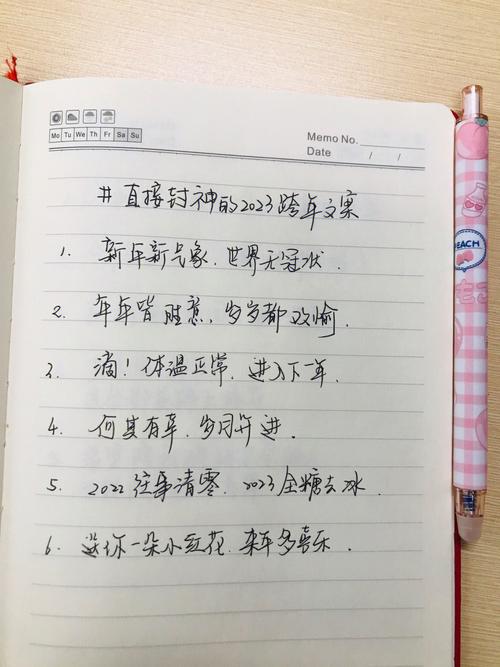 Mo Tu We Th Fr Sa Su
Memo No.
Date / /
#直接封神的2023跨年文案
1. 新年新气象,世界无冠状.
2. 年年皆胜意,岁岁都欢愉.
3. 滴!体温正常,进入下一年.
4. 何其有幸,岁月并进.
5. 2022往事清零,2023全糖去冰.
6. 送你一朵小红花,来年多喜乐.
PEACH